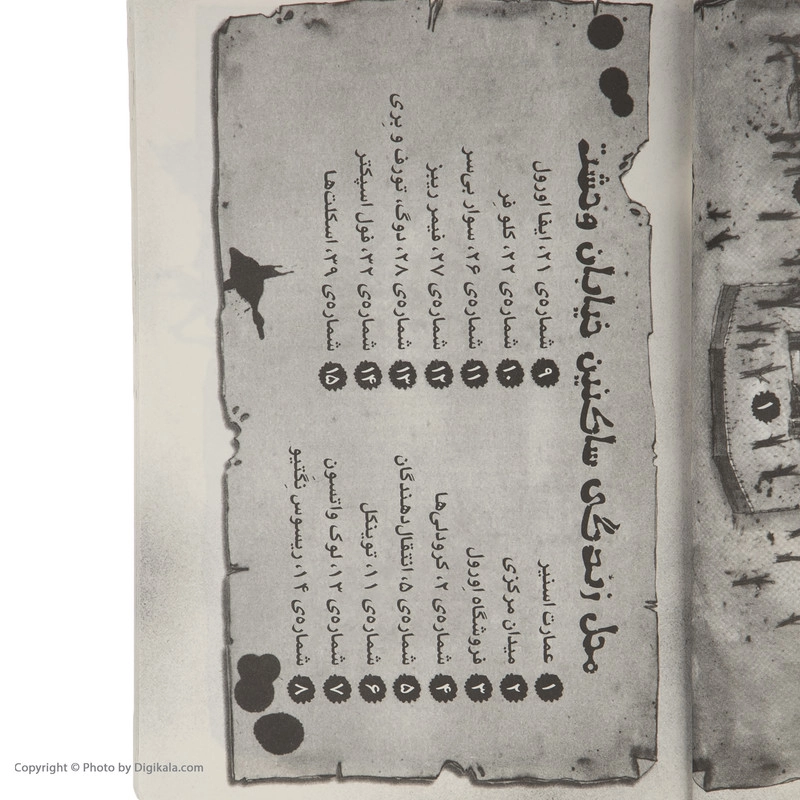 محل زندگی ساکنین خیابان وحشت
۱ عمارت اسنیر
۲ میدان مرکزی
۳ فروشگاه اِورول
۴ شماره‌ی ۲، کرودلی‌ها
۵ شماره‌ی ۵، انتقال‌دهندگان
۶ شماره‌ی ۱۱، توینکل
۷ شماره‌ی ۱۳، لوک واتسون
۸ شماره‌ی ۱۴، ریسوس نِگَتیو
۹ شماره‌ی ۲۱، ایفا اورول
۱۰ شماره‌ی ۲۲، کلو فَر
۱۱ شماره‌ی ۲۶، سوار بی‌سر
۱۲ شماره‌ی ۲۷، فیمر ریبز
۱۳ شماره‌ی ۲۸، دوگ، تورف و بری
۱۴ شماره‌ی ۳۲، فول اسپکتر
۱۵ شماره‌ی ۳۹، اسکلت‌ها
۱
Copyright © Photo by Digikala.com